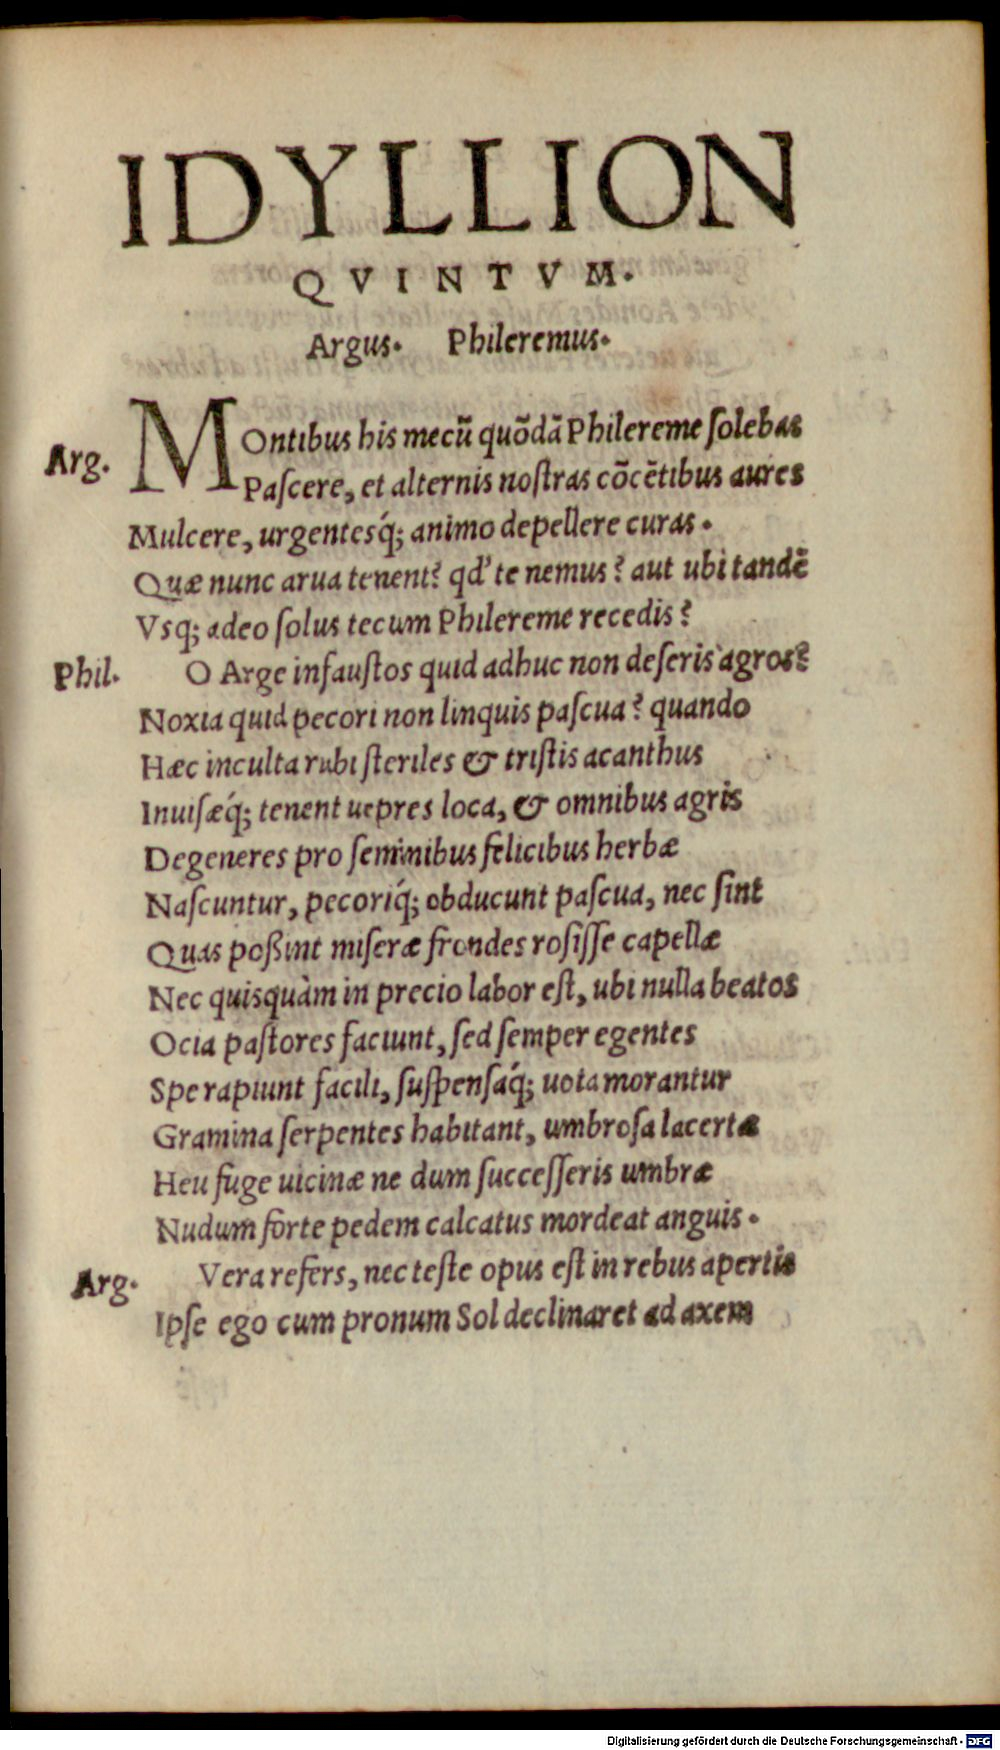 IDYLLION
QVINTVM.
Argus. Phileremus.
Arg. MOntibus his mecũ quõdã Philereme ſolebas
Paſcere, et alternis noſtras cõcẽtibus aures
Mulcere, urgentesq́; animo depellere curas.
Quæ nunc arua tenent? qd' te nemus? aut ubi tandẽ
Vsq; adeo ſolus tecum Philereme recedis?
Phil. O Arge infauſtos quid adhuc non deſeris agros?
Noxia quid pecori non linquis paſcua? quando
Hæc inculta rubi ſteriles & triſtis acanthus
Inuiſæq́; tenent uepres loca, & omnibus agris
Degeneres pro ſeminibus felicibus herbæ
Naſcuntur, pecoriq́; obducunt paſcua, nec ſint
Quas poßint miſeræ frondes roſiſſe capellæ
Nec quisquàm in precio labor eſt, ubi nulla beatos
Ocia paſtores faciunt, ſed ſemper egentes
Spe rapiunt facili, ſuſpenſaq́; uota morantur
Gramina ſerpentes habitant, umbroſa lacertæ
Heu fuge uicinæ ne dum ſucceſſeris umbræ
Nudum forte pedem calcatus mordeat anguis.
Arg. Vera refers, nec teſte opus eſt in rebus apertis
Ipſe ego cum pronum Sol declinaret ad axem
Digitalisierung gefördert durch die Deutsche Forschungsgemeinschaft - DFG